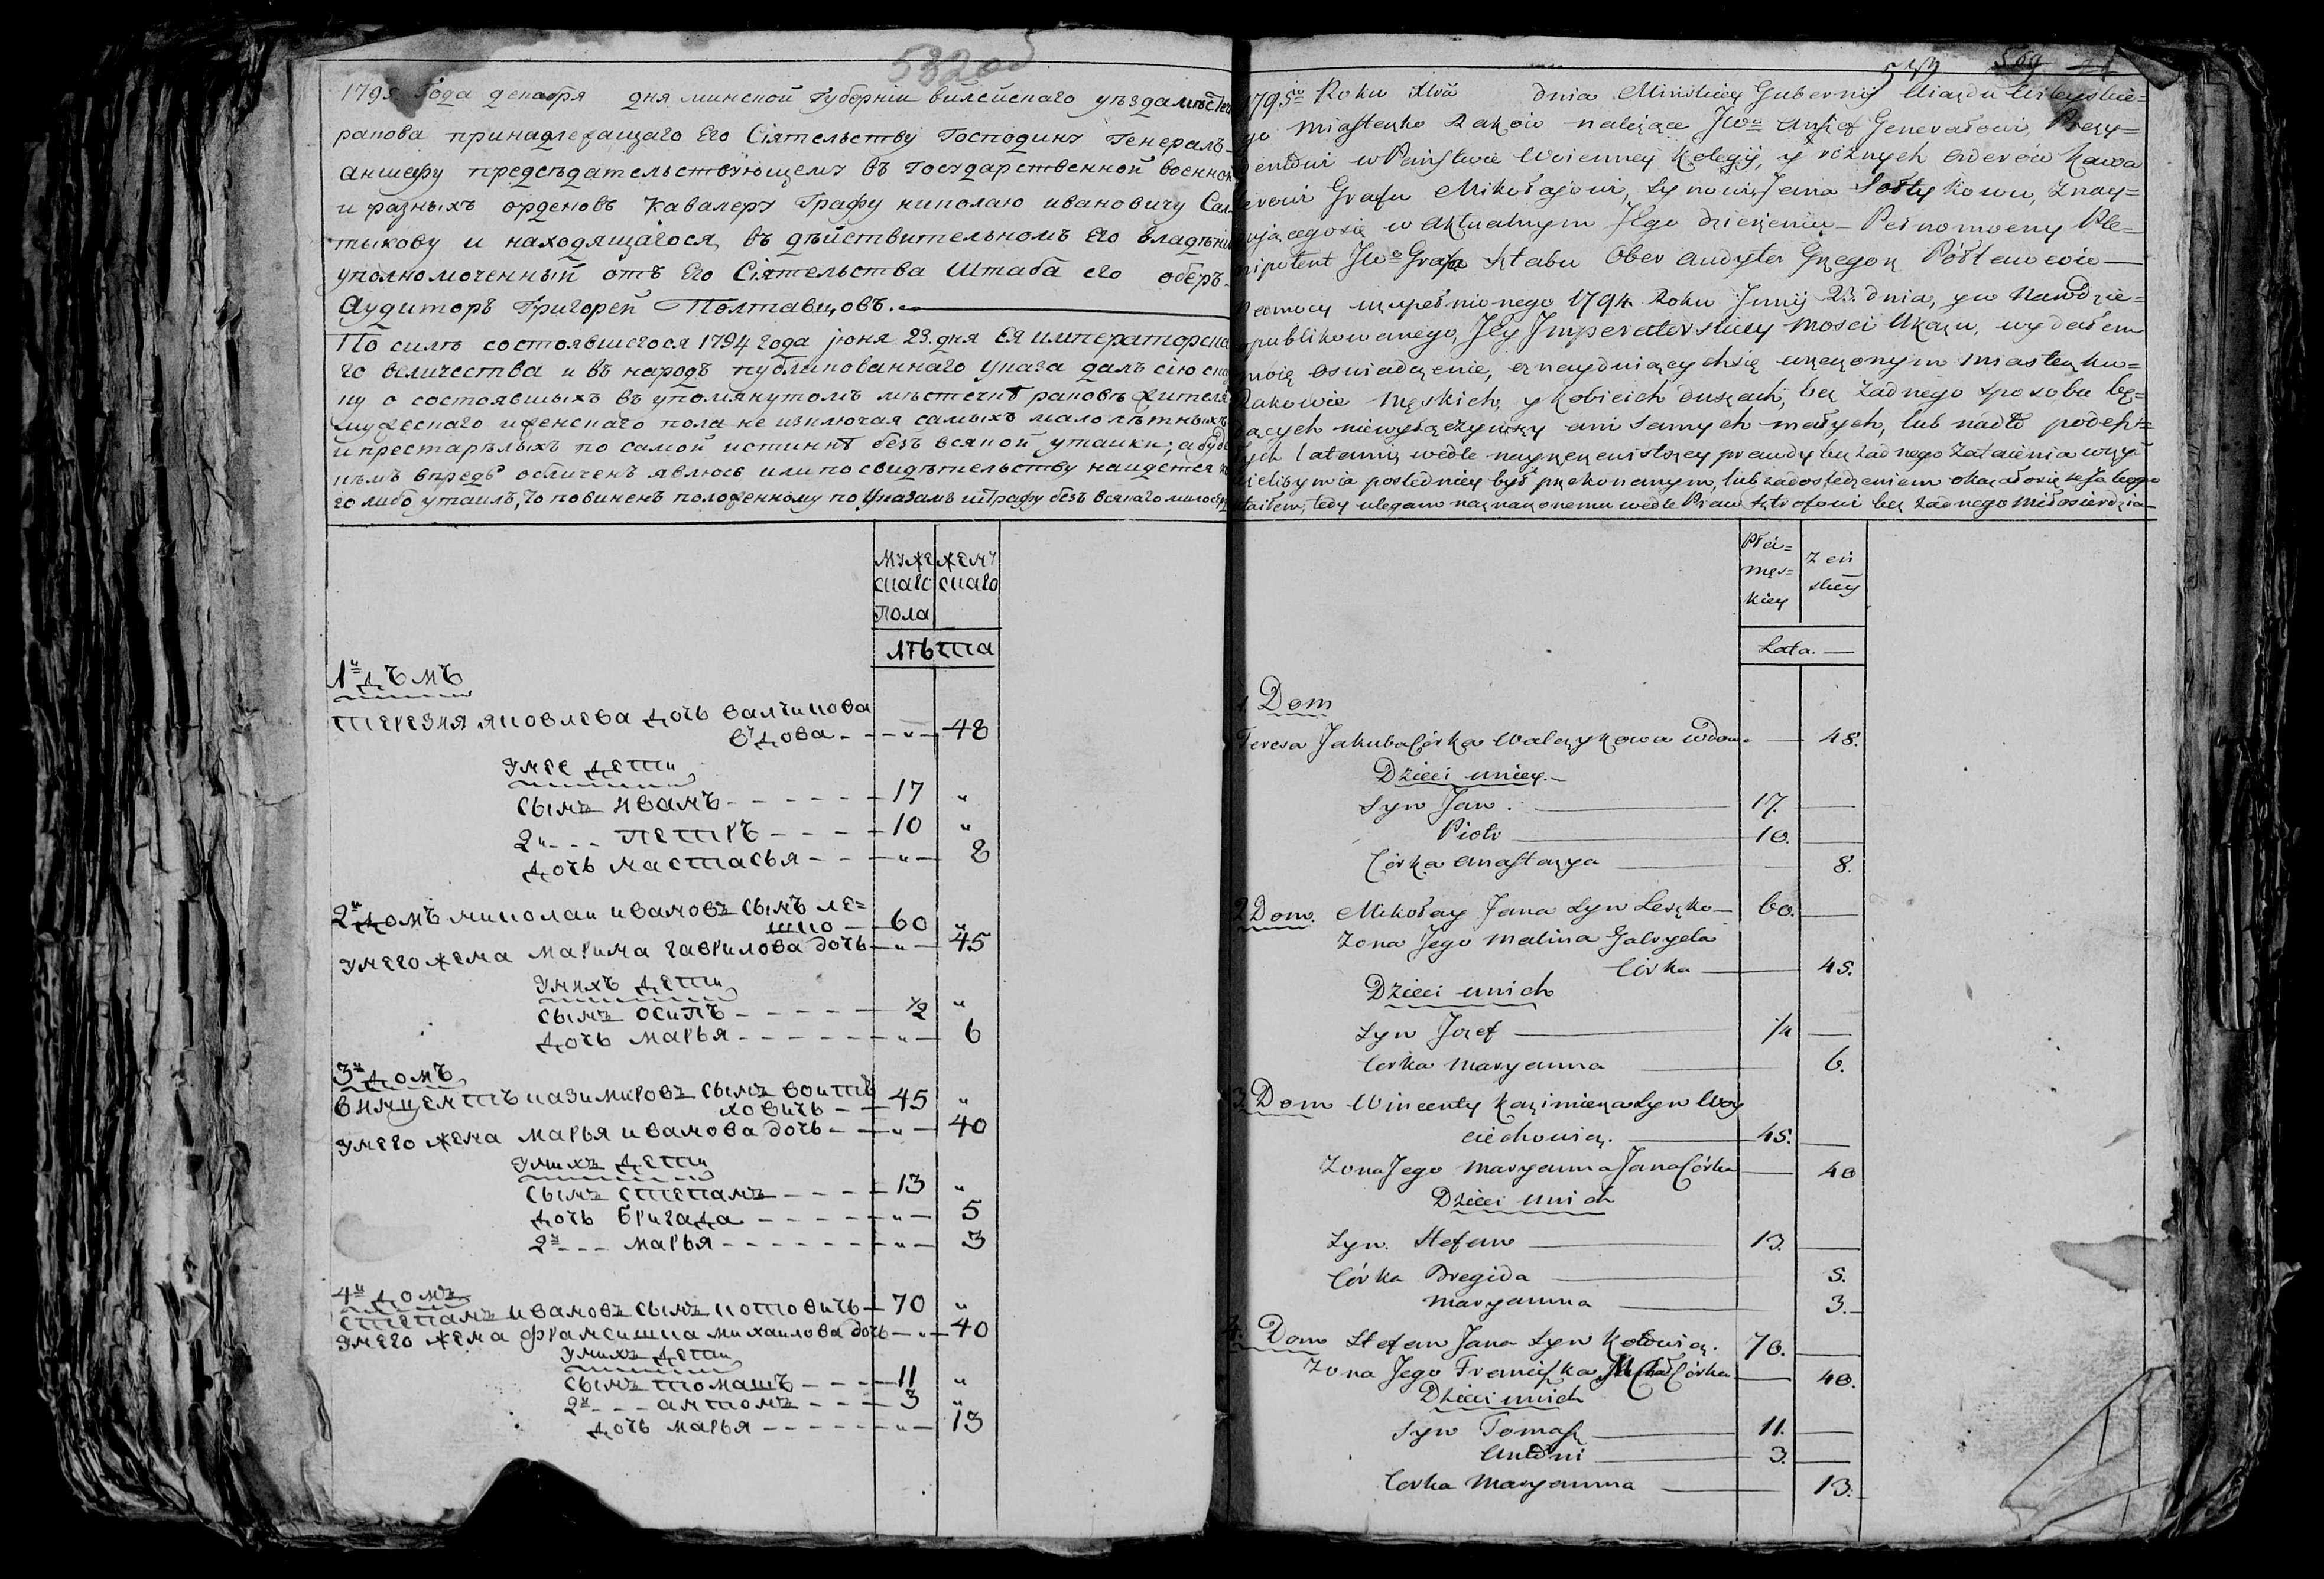 532об
1795 Года декабря дня минской Губернїи вилейскаго уезда местеч
ракова принадлежащаго Его Сїятельству Господину Генералъ-
аншефу председательствующему въ Государственной военной
и разныхъ орденовъ Кавалеру Графу николаю ивановичу Сал
тыкову и находящагося въ действительномъ его владенїи
уполномоченный отъ Его Сїятельства Штаба его оберъ-
Аудиторъ Григорей Полтавцовъ.
По силѣ состоявшегося 1794 года июня 23. дня ея императорска
го величества и въ народъ публикованнаго указа далъ сїю ска
ку о состоявшихъ въ упомянутомъ местечкѣ раковѣ жителя
мужескаго и женскаго пола не изключая самыхъ малолѣтныхъ
и престарѣлыхъ по самой истиннѣ безъ всякой утайки; а буде
нѣмъ впредь обличенъ явлюсь или по свидѣтельству найдется к
го либо утаилъ, то повиненъ положенному по Указамъ штрафу безъ всякаго милосерд
муже женч
скаго скаго
пола
лѣта
1й домъ
терезия яковлева дочь валчикова
вдова - - " - 48
унее дети
сынъ иванъ - - - 17 "
2й - - петръ - - - 10 "
дочь настасья - - " - 8
2й домъ николаи ивановъ сынъ ле=
шко - 60 "
унего жена марина гаврилова дочь - " - 45
унихъ дети
сынъ осипъ - - - ½ "
дочь марья - - - " - 6
3й домъ
винцентъ казимировъ сынъ воитѣ
ховичь - - 45 "
унего жена марья иванова дочь - - " - 40
унихъ дети
сынъ степанъ - - - 13 "
дочь бригада - - - " - 5
2й - - марья - - - " - 3
4й домъ
степанъ ивановъ сынъ котовичь - 70 "
унего жена франсишка михаилова дочь - " - 40
унихъ дети
сынъ томашъ - - - 11 "
2й - - антонъ - - - 3 "
дочь марья - - - " - 13
533 509
1795go Roku dnia Mińskiey Gubernij Uiazdu Wileyskie=
go Miasteczko Raków należące JWu Anszef Generałowi, Prezy=
dentowi w Państwie Woienney Kolegij, y różnych Orderów Kawa
lerowi Grafu Mikołajowi, Synowi Jana Sołtykowu, znay=
dującegosię w Aktualnym Jego dzierżeniu - Pełnomocny Ple=
nipotent JWo Grafa Sztabu Ober Audyter Grzegorz Połtawcow
Pomocy uzupełnionego 1794 Roku Junij 23. dnia, y w Narodzie=
opublikowanego, Jey Jmperatorskiey Mosci Ukazu, wydałem
moię oswiadczenie, oznayduiących się urzeczonym Miasteczku=
Rakowie Męskich, y kobieich duszach, bez żadnego sposobu bę=
dących niewyłączywszy ani Samych małych, lub nadto podeszł=
łych latami, wedle nayrzeczewistszey prawdy bez żadnego zataienia
ieślibym ia posledniey był przekonanym, lub zadosledzeniem okazałosię że ia kogo
utaiłem, tedy ulegam naznaczonemu wedle Praw sztrofowi bez żadnego Miłosierdzia
Płci= Zeń
męs= skiey
kiey
Lata.
1. Dom
Teresa Jakuba Córka Walczykowa Wdow. 48.
Dzieci uniey.
Syn Jan. 17.
Piotr 10.
Córka Anastazya 8.
2 Dom. Mikołay Jana Syn Leszko 60.
Zona Jego Malina Gabryela
Córka 45.
Dzieci unich
Syn Jozef ½
Corka Maryanna 6.
3 Dom Wincenty Kazimierza Syn Woy
ciechowicz. 45.
Zona Jego Maryanna Jana Córka 40
Dzieci unich
Syn. Stefan 13.
Córka Bregida 5.
Maryanna 3.
4. Dom Stefan Jana Syn Kotowicz. 70.
Zona Jego Franciszka Córka 40.
Dzieci unich
Syn Tomasz 11.
Antoni 3.
Corka Maryanna 13.